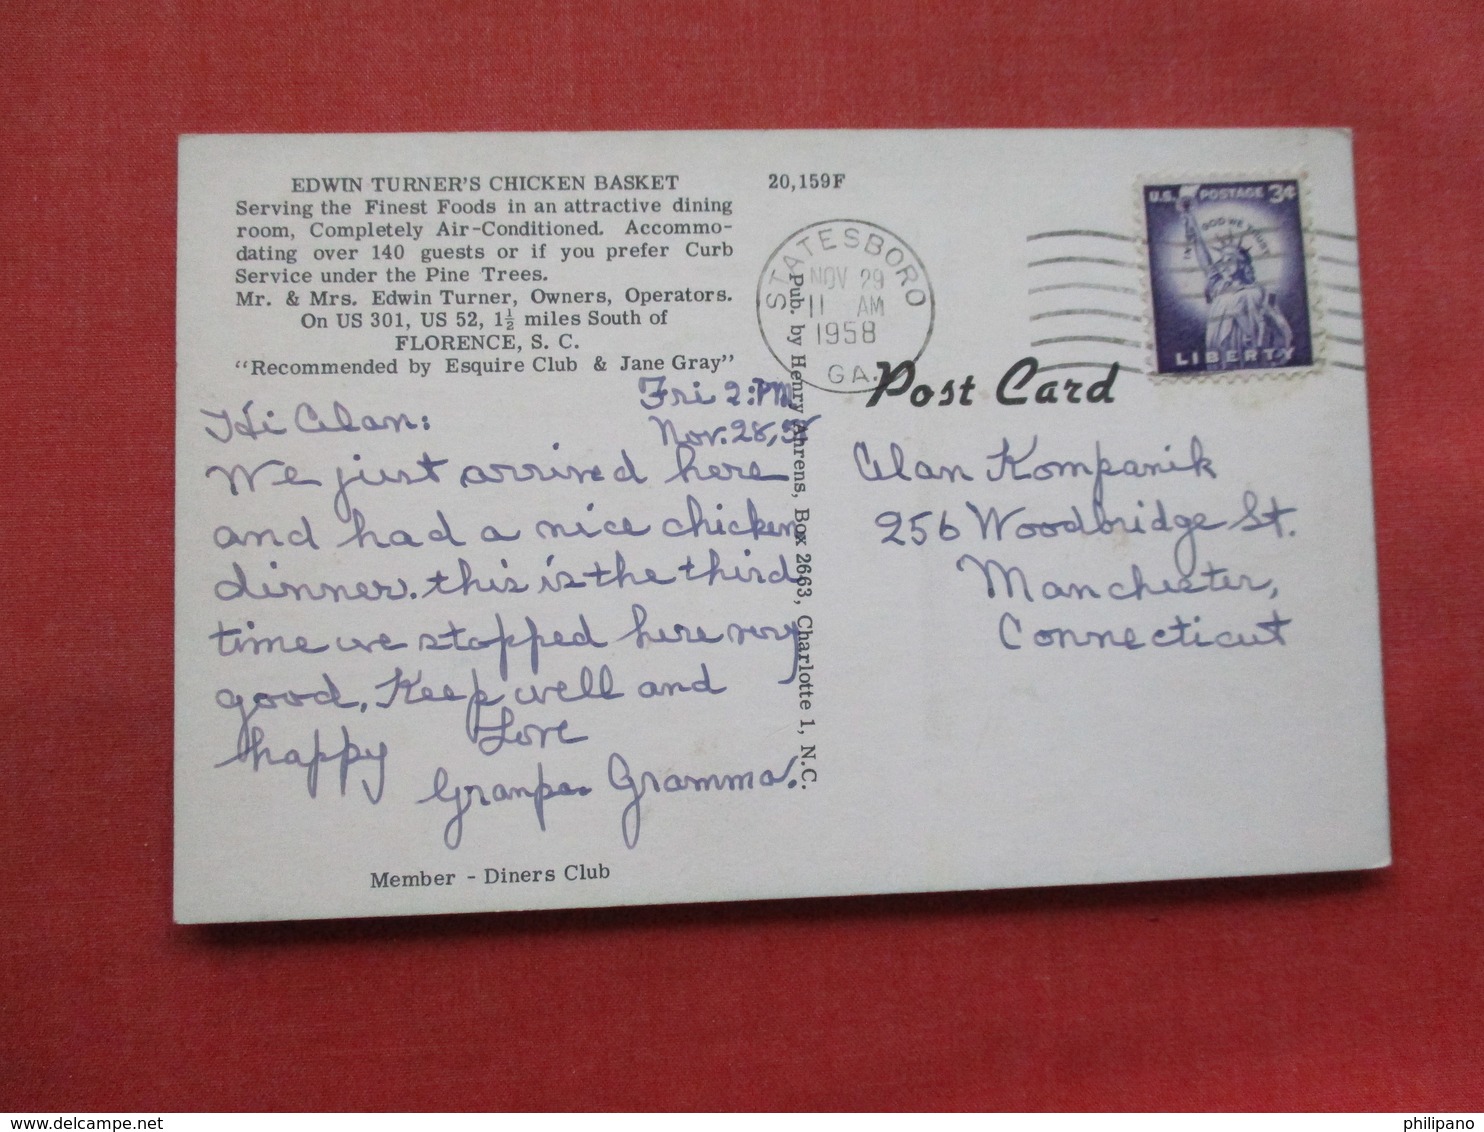 EDWIN TURNER'S CHICKEN BASKET
Serving the Finest Foods in an attractive dining
room, Completely Air-Conditioned. Accommo-
dating over 140 guests or if you prefer Curb
Service under the Pine Trees.
Mr. & Mrs. Edwin Turner, Owners, Operators.
On US 301, US 52, 1½ miles South of
FLORENCE, S. C.
"Recommended by Esquire Club & Jane Gray"
20,159F
STATESBORO
NOV 29
11 AM
1958
GA.
U.S. POSTAGE 3¢
IN GOD WE TRUST
LIBERTY
Post Card
Pub. by Henry Ahrens, Box 2663, Charlotte 1, N.C.
Fri 2:PM
Nov. 28, 58
Hi Alan:
We just arrived here
and had a nice chicken
dinner. this is the third
time we stopped here very
good. Keep well and
happy Love
Granpa Gramma.
Alan Kompanik
256 Woodbridge St.
Manchester,
Connecticut
Member - Diners Club
https://www.delcampe.net
philipano